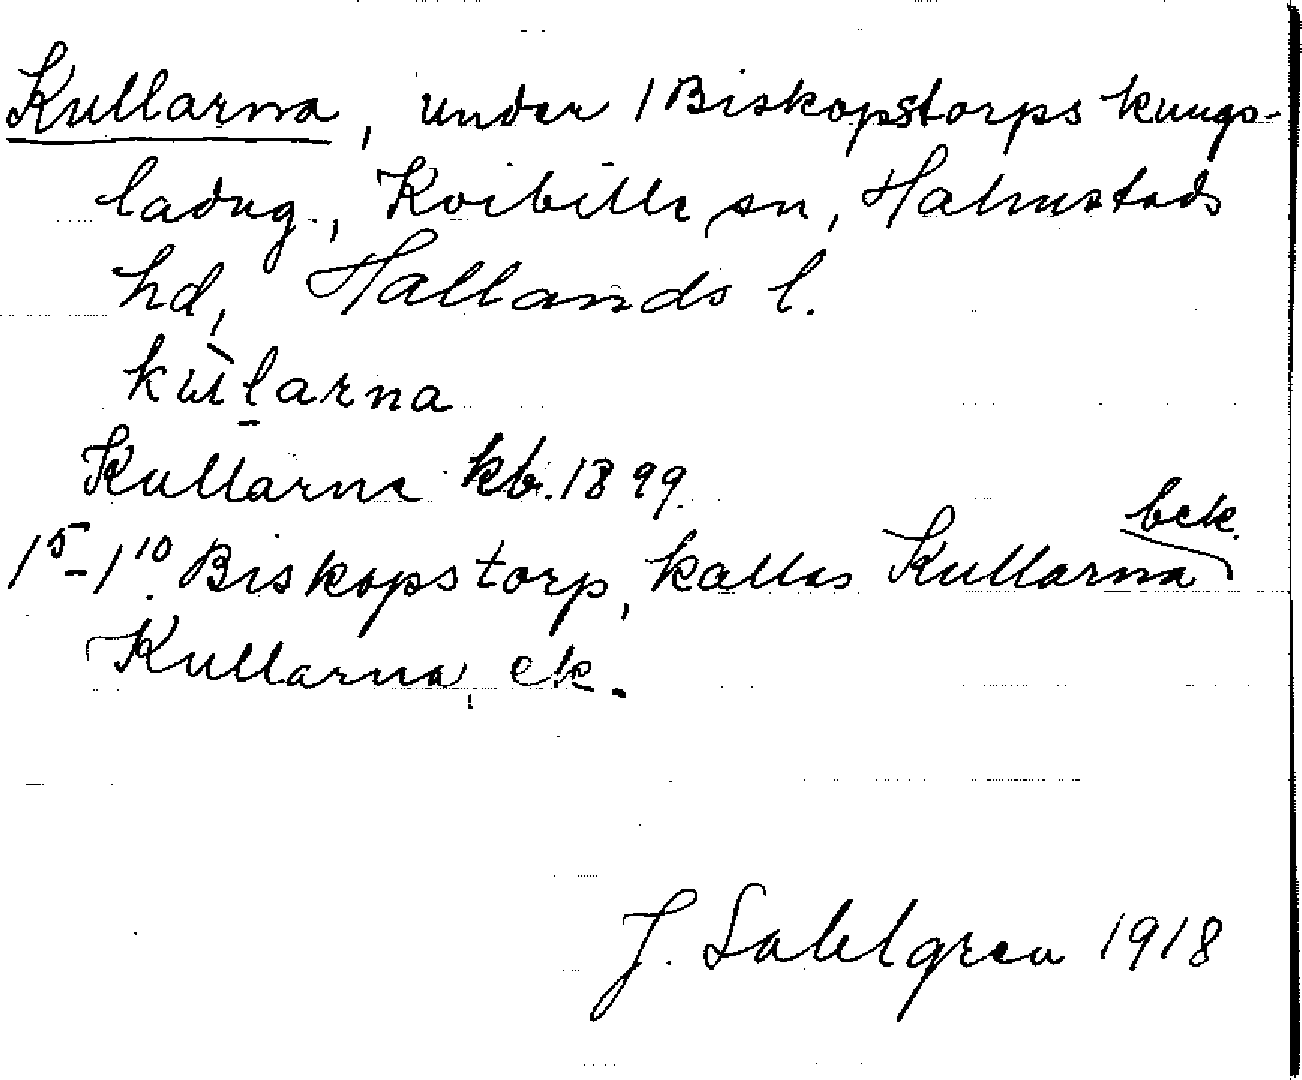 Kullarna, under 1 Biskopstorps kungs-
ladug., Kvibille sn, Halmstads
hd, Hallands l.
kùl̠arna
Kullarne kb. 1899.
1⁵-1¹⁰ Biskopstorp, kallas Kullarna bek.
Kullarna, ek.
J. Sahlgren 1918